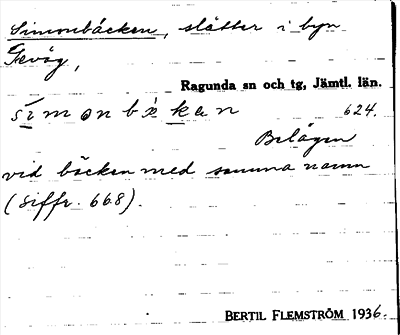 Simonbäcken, slåtter i byn
Gevåg,
Ragunda sn och tg, Jämtl. län.
624.
Belägen
vid bäcken med samma namn
(siffr. 668).
BERTIL FLEMSTRÖM 1936.